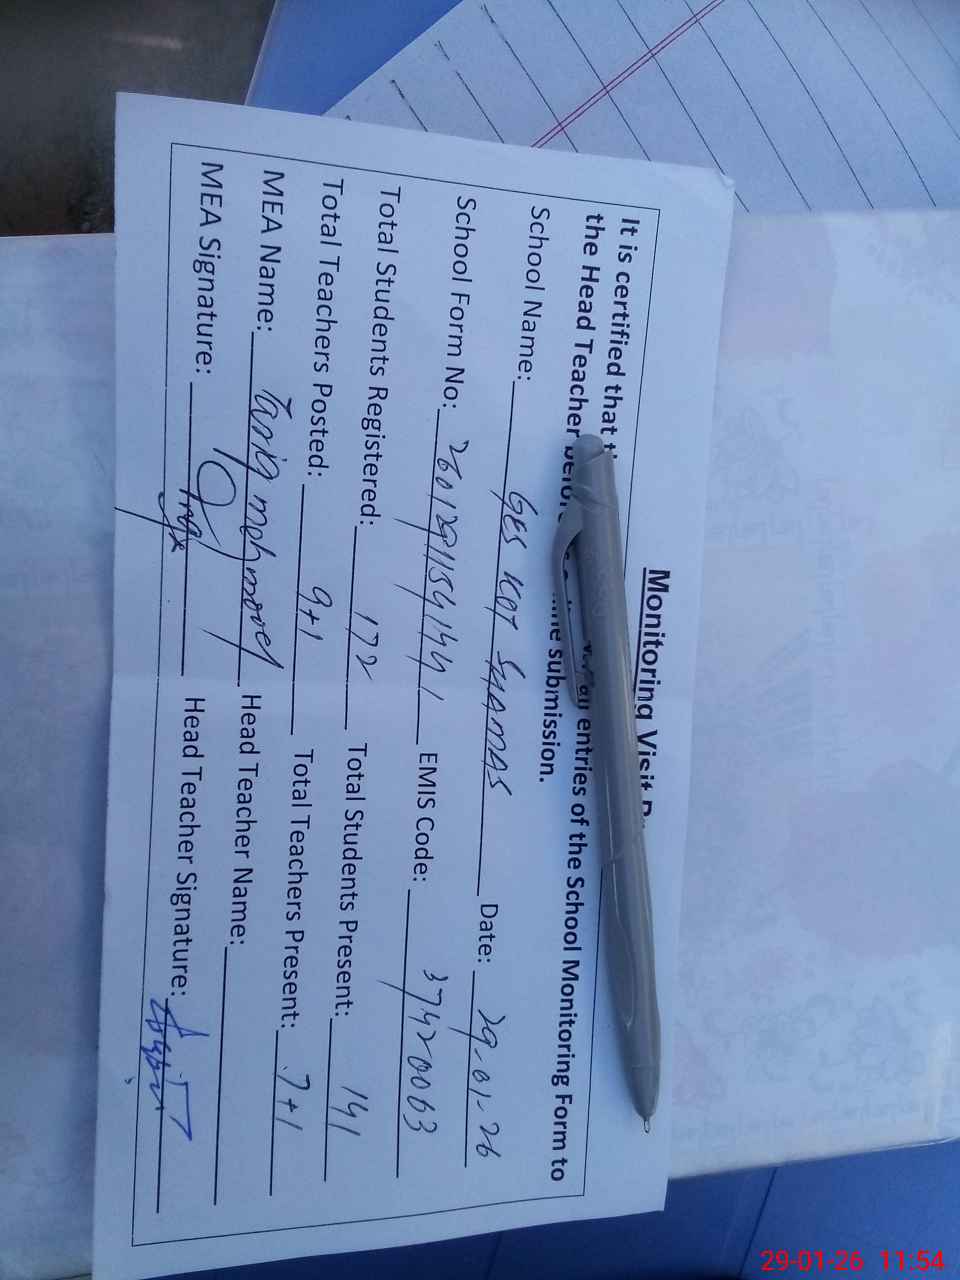 Monitoring Visit
It is certified that entries of the School Monitoring Form to
the Head Teacher submission.
School Name: GES KOT SHAMAS Date: 29-01-26
School Form No: EMIS Code: 37420063
Total Students Registered: 172 Total Students Present: 141
Total Teachers Posted: 9+1 Total Teachers Present: 7+1
MEA Name: Tariq mehmood Head Teacher Name:
MEA Signature: Head Teacher Signature:
29-01-26 11:54